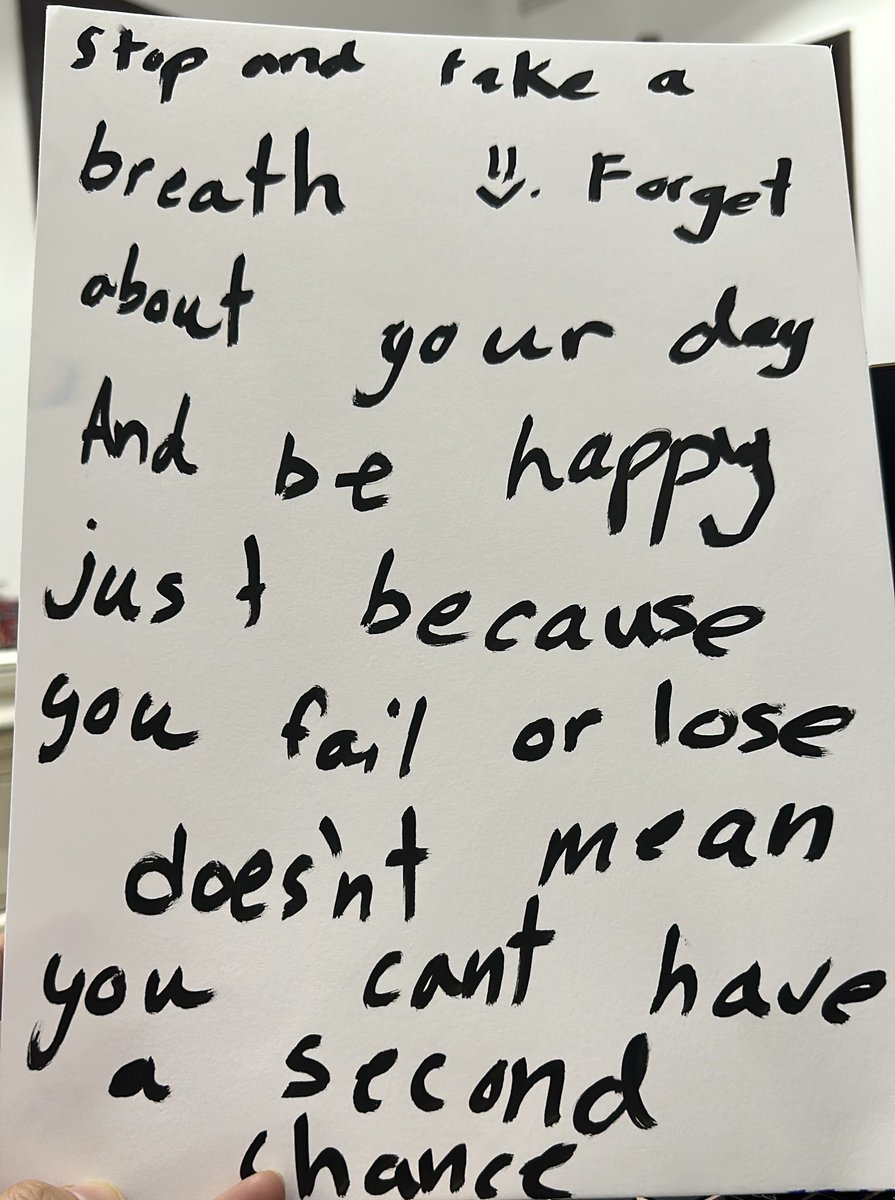 stop and take a
breath . Forget
about your day
And be happy
just because
you fail or lose
does'nt mean
you cant have
a second
chance